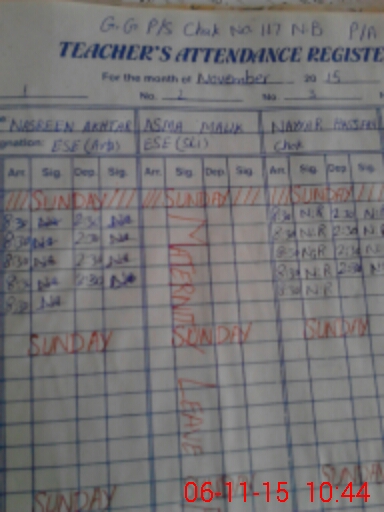 G.G P/S Chak No. 117 NB P/A
TEACHER'S ATTENDANCE REGISTE
For the month of November 20 15
1 No. 2 No 3
NASREEN AKHTAR ASMA MALIK NAYYAR
gnation: ESE (Arb) ESE (Sci)
Arr. Sig. Dep. Sig. Arr. Sig. Dep. Sig. Arr. Sig. Dep. Sig.
/// SUNDAY /// SUNDAY /// SUNDAY
8:30 NA 2:30 NA 8:30 N.R 2:30 N.R
8:30 NA 2:30 NA 8:30 N.R 2:30 N.R
8:30 NA 2:30 NA 8:30 N.R 2:30 N.R
8:30 NA 2:30 NA 8:30 N.R 2:30 N.R
8:30 NA 8:30 N.R
MATERNITY LEAVE
SUNDAY SUNDAY SUNDAY
SUNDAY SUNDAY
06-11-15 10:44